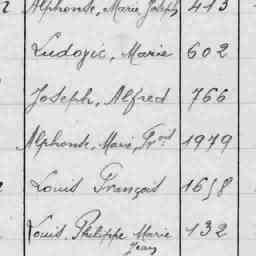 Alphonse, Marie Joseph 413
Ludovic, Marie 602
Joseph, Alfred 766
Alphonse, Marie, Frnd 1979
Louis François 1658
Louis, Philippe Marie 132
Jean